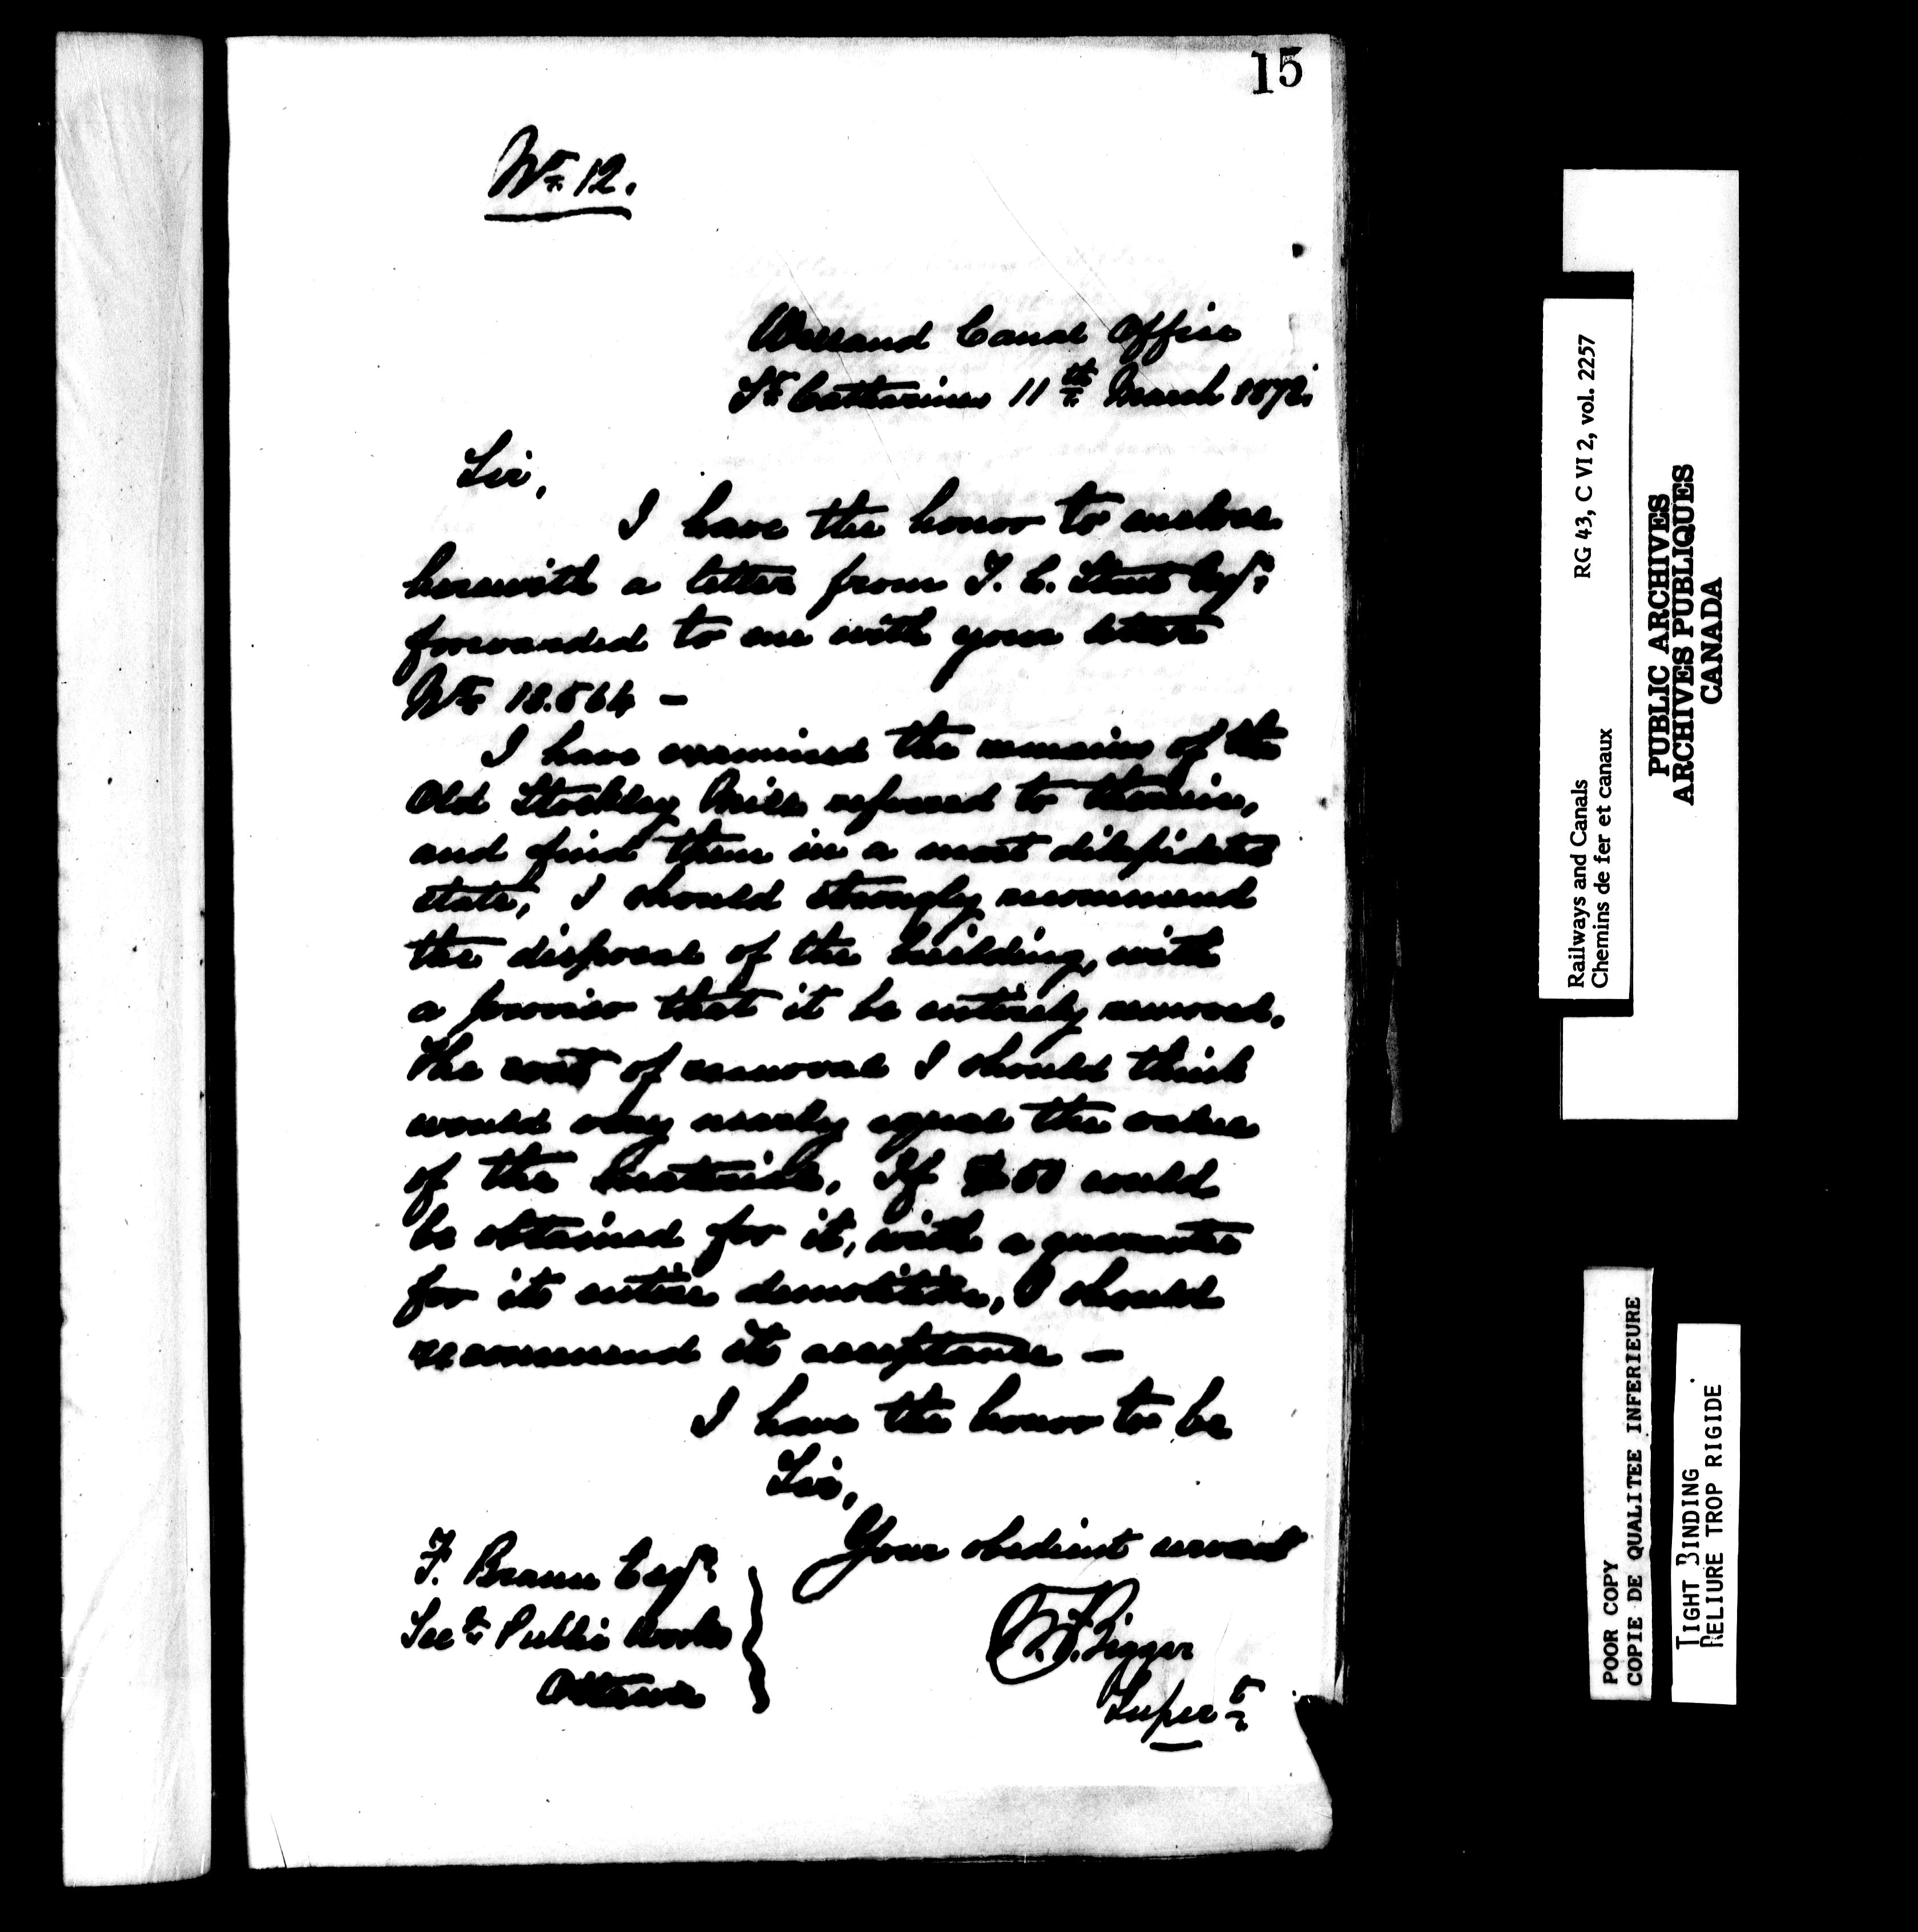 15
No. 12.
Welland Canal Office
St. Catharines 11th March 1872.
Sir,
I have the honor to enclose
herewith a letter from T. C. Esqr.
forwarded to me with your letter
No. 18.564 —
I have examined the remains of the
Old Stockley Mill referred to therein,
and find them in a most dilapidated
state, I should strongly recommend
the disposal of the building, with
a proviso that it be entirely removed.
The cost of removal I should think
would very nearly equal the value
of the materials. If $50 could
be obtained for it, with a guarantee
for its entire demolition, I should
recommend its acceptance —
I have the honor to be
Sir,
Your obedient servant
Supert
F. Braun Esqr
Secy Public Works
Ottawa
Railways and Canals RG 43, C VI 2, vol. 2257
Chemins de fer et canaux
PUBLIC ARCHIVES
ARCHIVES PUBLIQUES
CANADA
POOR COPY
COPIE DE QUALITEE INFERIEURE
TIGHT BINDING
RELIURE TROP RIGIDE